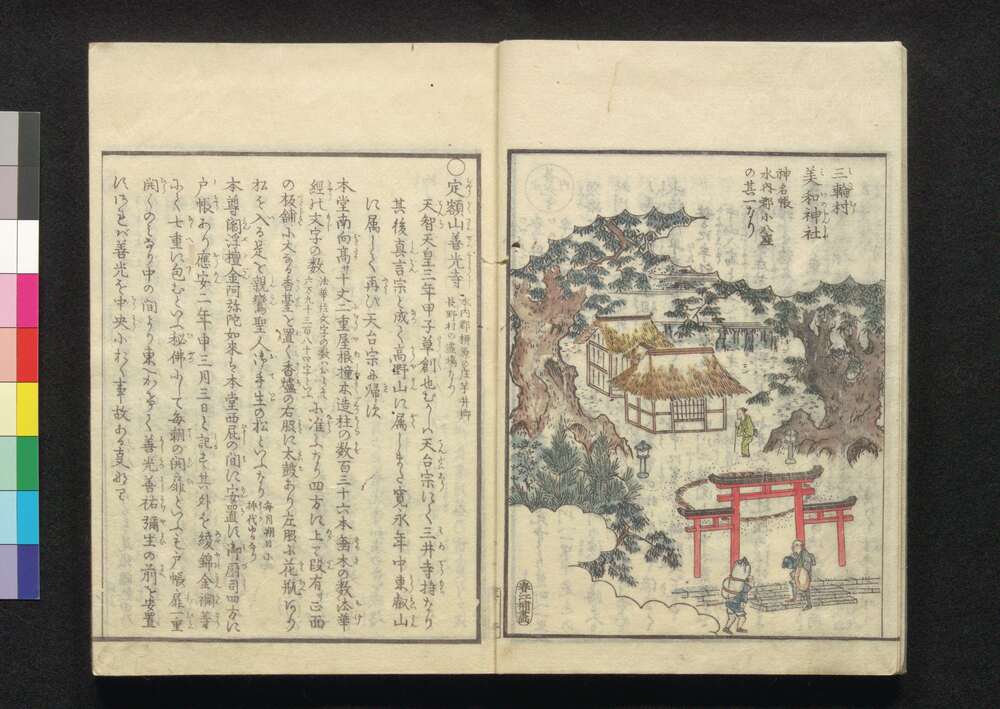 三輪村
美和神社
神名帳
水内郡小公座
の其一なり
春江補画
○定額山善光寺
天智天皇三年甲子草創也むかしハ天台宗にして三井寺持なり
其後真言宗と成て高野山に属しまた寛永年中東叡山
に属して再び天台宗に帰次
本堂南向高サ十丈二重屋根撞木造柱の数百三十六本垂木の数法華
経の文字の数
六万九千三百八十四字
に准ふなり四方に上て段有り正面
の板鋪小大なる香基を置く香爐の右脇に太鼓あり左脇に花瓶ありて
松を入る是を親鸞聖人御手生の松といふなり
毎月朔日に
挿代ゆるなり
本尊閻浮檀金阿弥陀如来ハ本堂西庇の間に安置に御厨司四方に
戸帳あり應安二年申三月三日と記す其外を綾錦金襴等
にて七重に包むといふ秘佛にして毎朝の開扉といふも戸帳扉一重
開くのミなり中の間より東へかけて善光善祐彌生の前を安置
善光を中央におく事故ある事にて